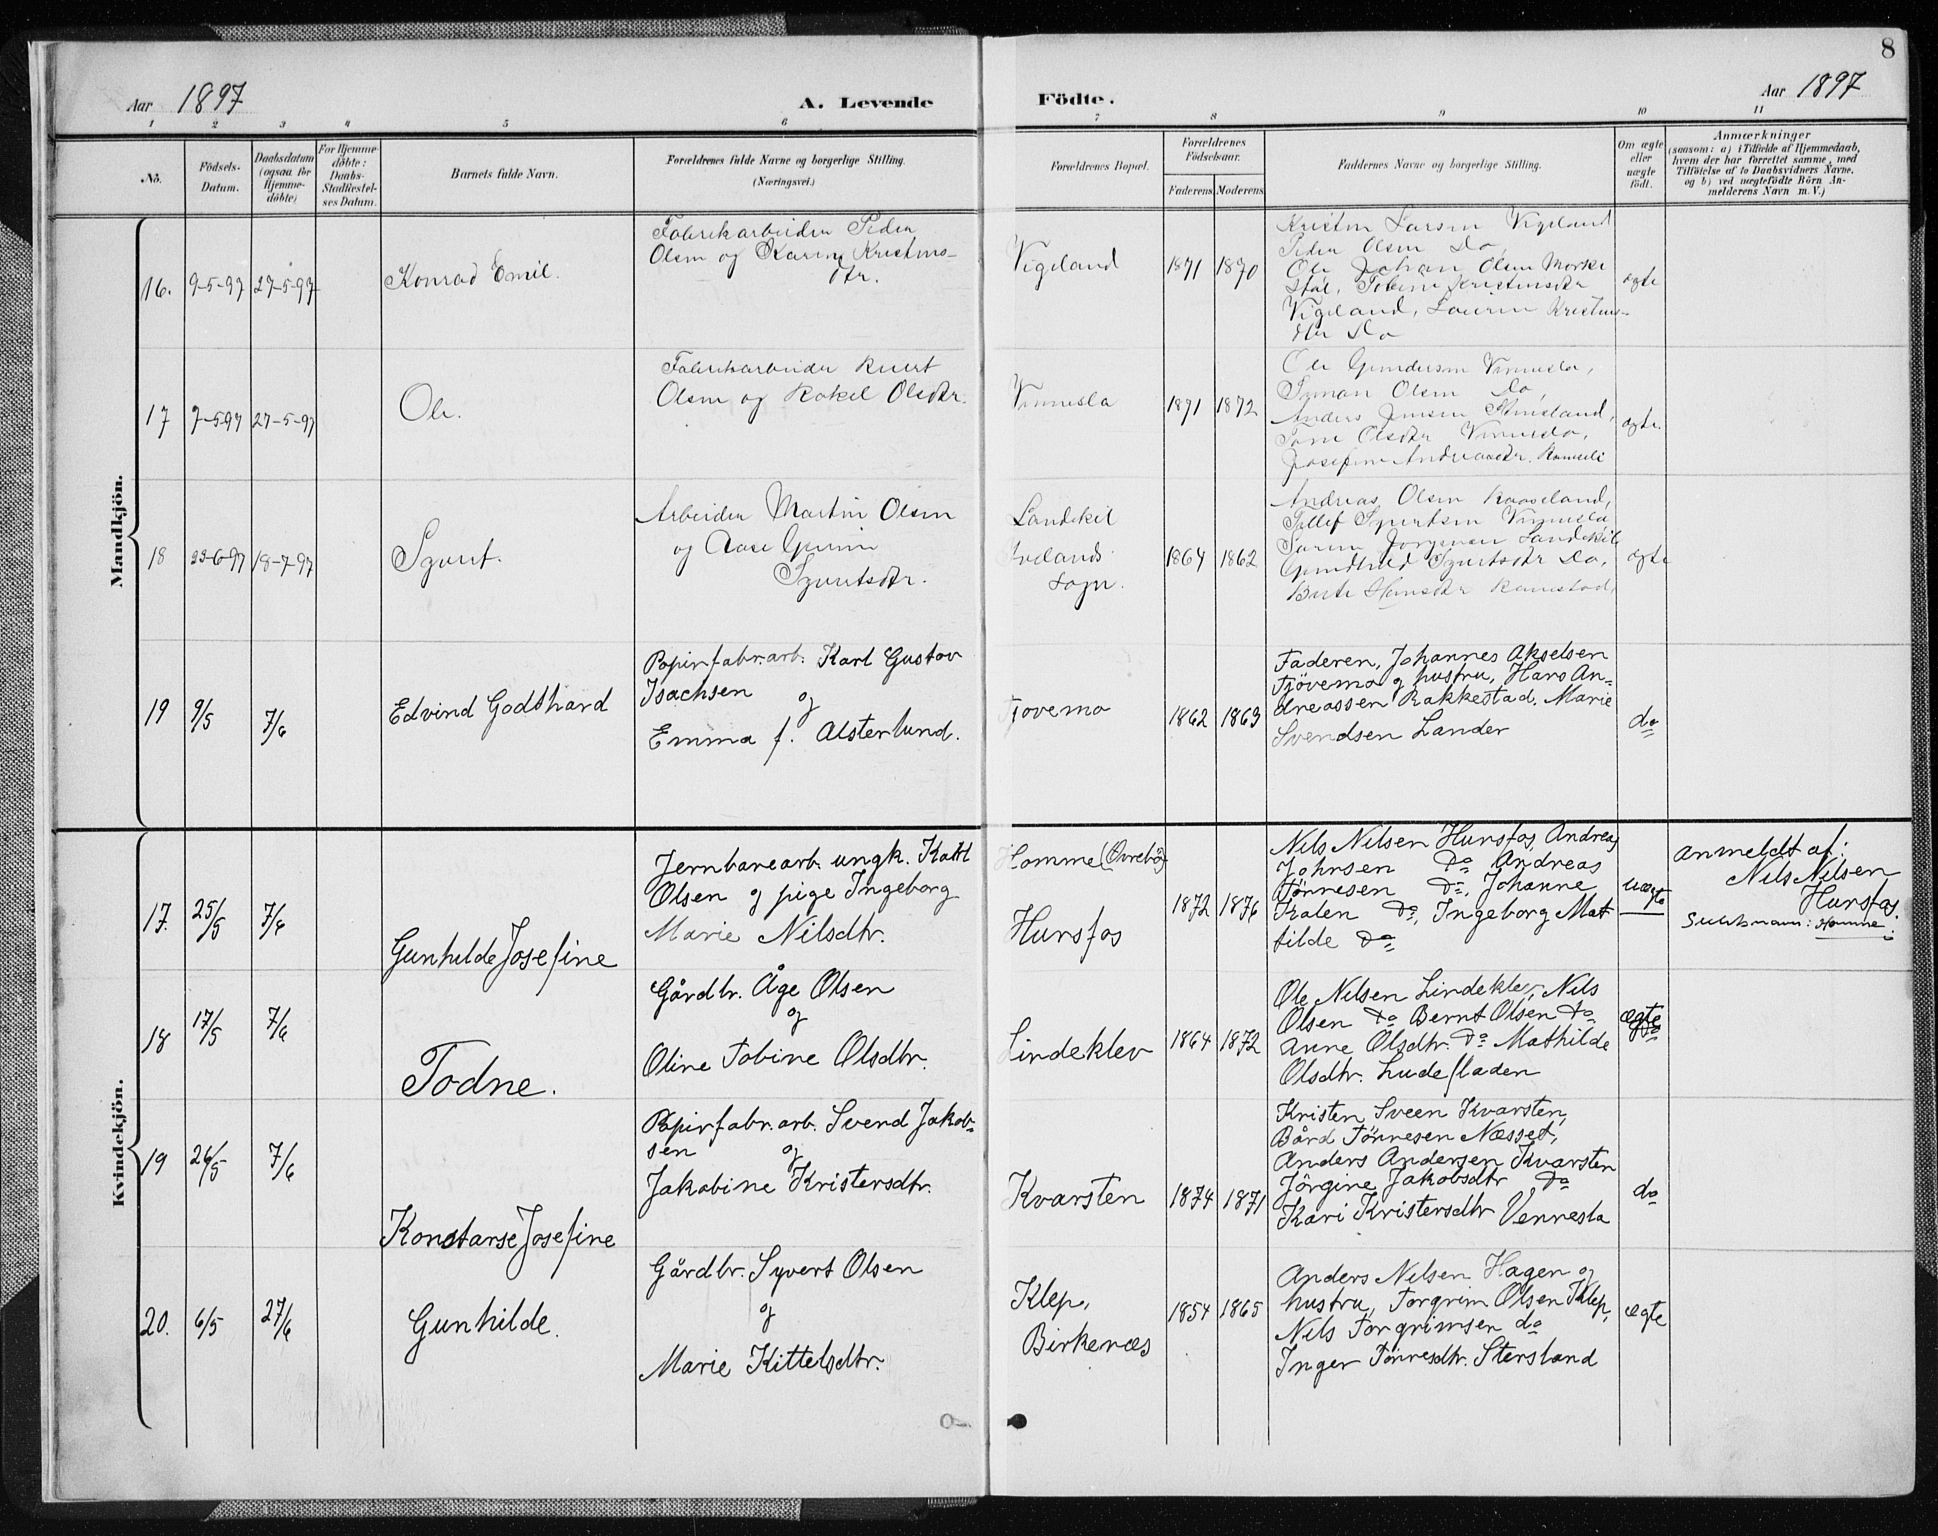 8
Aar 1897
A. Levende
Födte.
Aar 1897
1 2 3 4 5 6 7 8 9 10 11
No.
Födsels-
Datum.
Daabsdatum
(ogsaa for
Hjemme-
döbte)
For Hjemme-
döbte:
Daabs-
Stadfæstel-
ses Datum.
Barnets fulde Navn.
Forældrenes fulde Navne og borgerlige Stilling.
(Næringsvei.)
Forældrenes Bopæl.
Forældrenes
Födselsaar.
Faderens Moderens
Faddernes Navne og borgerlige Stilling.
Om ægte
eller
uægte
födt.
Anmærkninger
(saasom: a) i Tilfælde af Hjemmedaab,
hvem der har forrettet samme, med
Tilföielse af to Daabsvidners Navne,
og b) ved uægtefödte Börn An-
melderens Navn m. V.)
Mandkjön.
16.
9-5-97
27-5-97
Konrad Emil.
Fabrikarbeider Peder
Olsen og Karine Kristens-
dtr.
Vigeland
1871
1870
Kristen Larsen Vigeland
Peder Olsen Do,
Ole Johan Olsen
Tobine Kristensdtr
Vigeland, Kristens-
dtr Do
ægte
17
7-5-97
27-5-97
Ole.
Fabrikarbeider
Olsen og Rakel Olsdtr.
Vennesla
1871
1872
Ole Gundersen Vennesla,
Olsen Do,
Anders Jensen
Olsdtr Vennesla,
Josefine Andreasdtr.
ægte.
18
23-6-97
18-7-97
Syvert.
Arbeider Martin Olsen
og Aase
Syvertsdtr.
Landekil
Ivelands
sogn.
1864
1862
Andreas Olsen
Tellef Syvertsen Vennesla
Jorgensen Landekil
Gundhild Syvertsdtr Do,
Hansdtr
ægte
19
9/5
7/6
Edvind Godthard
Papirfabr.arb. Karl Gustav
Isachsen
og
Emma f. Alsterlund.
Tjovemo
1862
1863
Faderen, Johannes Akselsen
Tjövemo og hustru, Hans An-
dreassen Rakkestad. Marie
Svendsen Lander
do
Kvindekjön.
17.
25/5
7/6
Gunhilde Josefine
Jernbanearb. ungk. Karl
Olsen og pige Ingeborg
Marie Nilsdtr.
Homme (Övrebö)
Hunsfos
1872
1876
Nils Nilsen Hunsfos, Andreas
Johnsen do Andreas
Tönnesen do, Johanne
do, Ingeborg Mat
tilde do
uægte
Anmeldt af:
Nils Nilsen
Hunsfos.
Homme
18
17/5
7/6
Todne.
Gårdbr. Åge Olsen
og
Oline Tobine Olsdtr.
Lindeklev
1864
1872
Ole Nilsen Lindeklev, Nils
Olsen do Bernt Olsen do
Anne Olsdtr. do Mathilde
Olsdtr. Hudefladen
ægte
19
26/5
7/6
Konstanse Josefine
Papirfabr.arb. Svend Jakob-
sen og
Jakobine Kristensdtr.
Kvarsten
1874
1871
Kristen Sveen Kvarsten,
Bård Tönnesen Næsset,
Anders Andersen Kvarsten
Jörgine Jakobsdtr do
Kari Kristensdtr Vennesla
do
20.
6/5
27/6
Gunhilde.
Gårdbr. Syvert Olsen
og
Marie Kittelsdtr.
Klep,
Birkenæs
1854
1865
Anders Nilsen Hagen og
hustru, Torgrim Olsen Klep,
Nils Torgrimsen do
Inger Tönnesdtr. Stersland
ægte